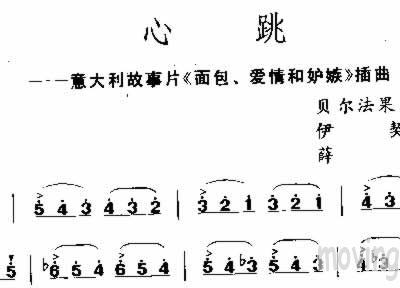 心 跳
——意大利故事片《面包、爱情和妒嫉》插曲
贝尔法果
伊 契
薛
5 4 3 4 3 2 | 3 2 1 3 2 1 | 4 3
5 | ♭6 5 4 6 5 4 | 5 4 ♭3 5 4 3
moving